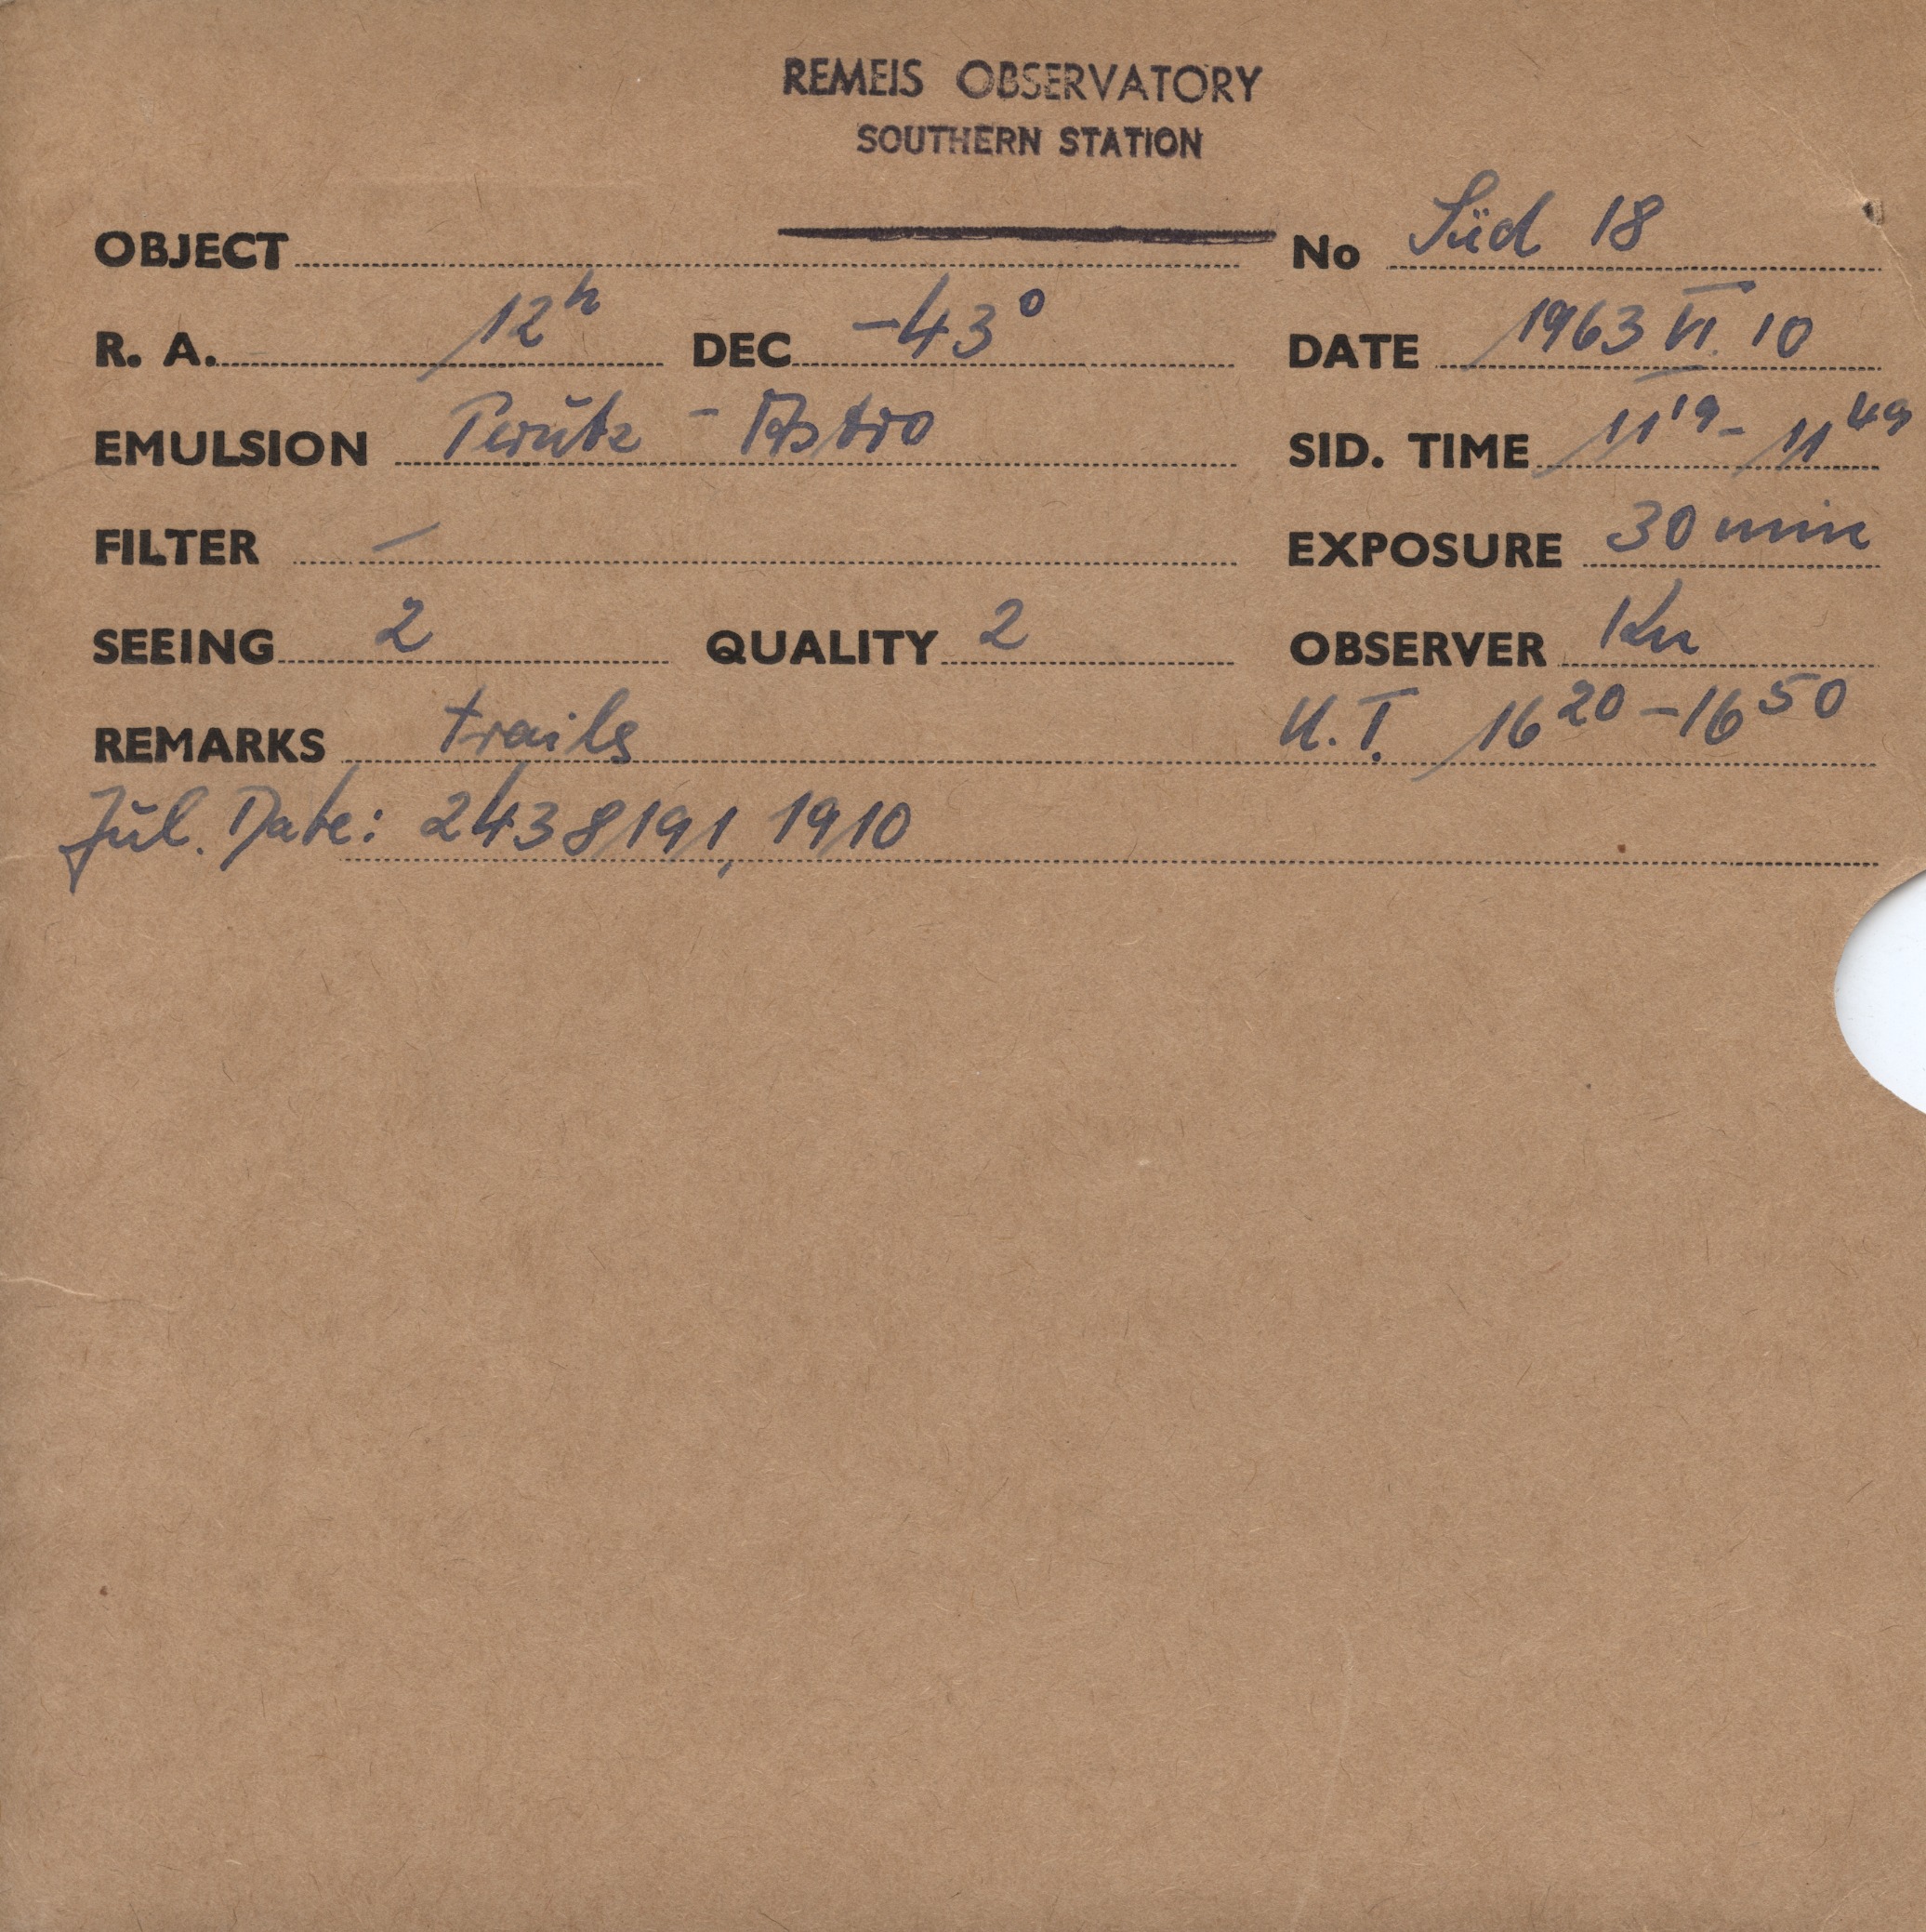 REMEIS OBSERVATORY
SOUTHERN STATION
OBJECT No Süd 18
R. A. 12h DEC -43° DATE 1963 VI. 10
EMULSION Perutz - Astro SID. TIME 11 19 - 11 49
FILTER — EXPOSURE 30 min
SEEING 2 QUALITY 2 OBSERVER Kn
REMARKS trails U.T. 16 20 - 16 50
Jul. Date: 2438191,1910